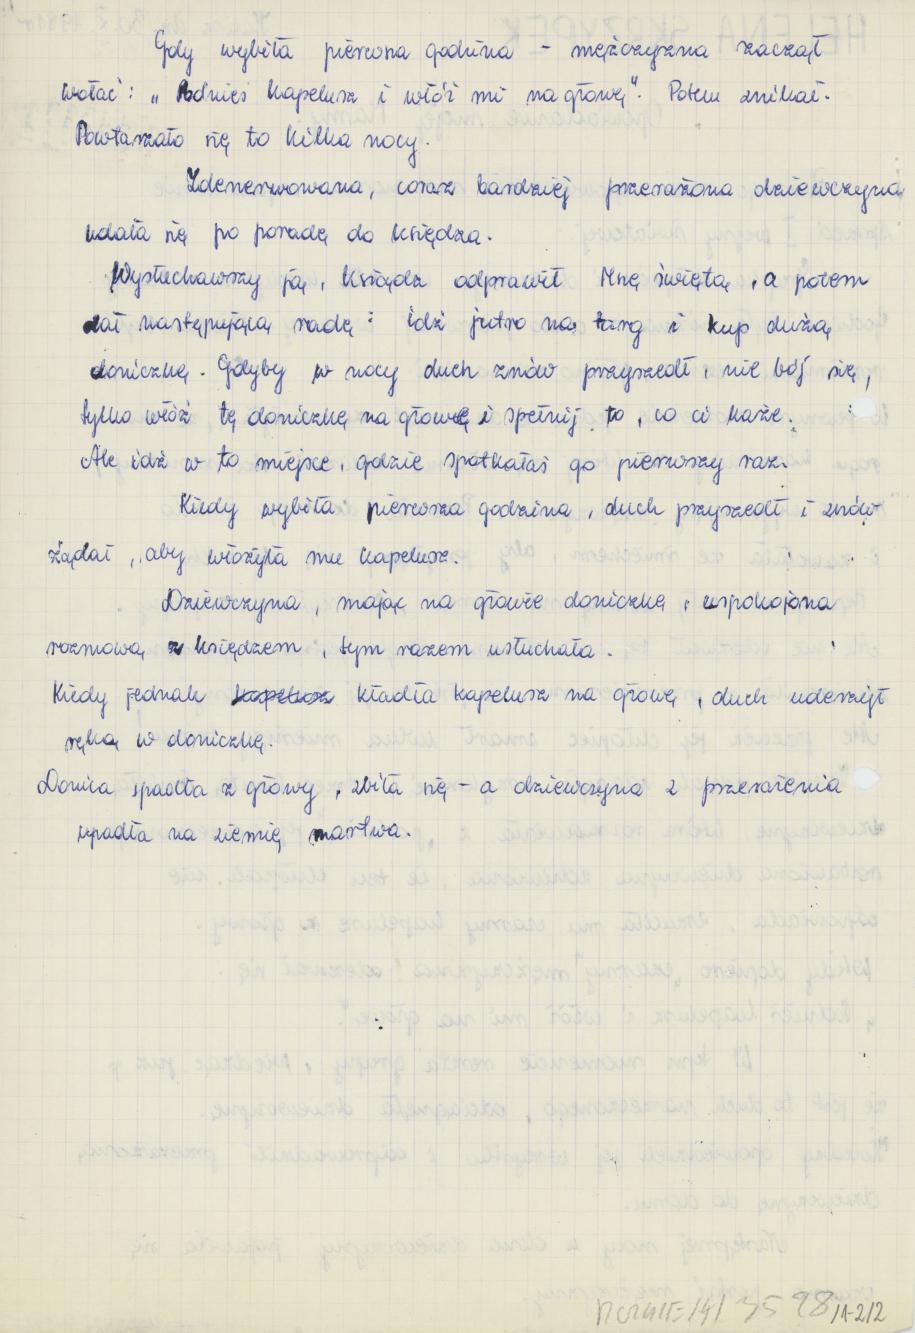 Gdy wybiła pierwsza godzina – mężczyzna zaczął
wołać: „Podnieś kapelusz i włóż mi na głowę". Potem znikał.
Powtarzało się to kilka nocy.
Zdenerwowana, coraz bardziej przerażona dziewczyna
udała się po poradę do księdza.
Wysłuchawszy ją, ksiądz odprawił Mszę świętą, a potem
dał następującą radę: idź jutro na targ i kup dużą
doniczkę. Gdyby w nocy duch znów przyszedł nie bój się,
tylko włóż tę doniczkę na głowę i spełnij to, co ci każe.
Ale idź w to miejsce, gdzie spotkałaś go pierwszy raz.
Kiedy wybiła pierwsza godzina, duch przyszedł i znów
żądał, aby włożyła mu kapelusz.
Dziewczyna, mając na głowie doniczkę, uspokojona
rozmową z księdzem, tym razem usłuchała.
Kiedy jednak kapelusz kładła kapelusz na głowę, duch uderzył
ręką w doniczkę.
Donica spadła z głowy, zbiła się – a dziewczyna z przerażenia
upadła na ziemię martwa.
3598/1-2/2